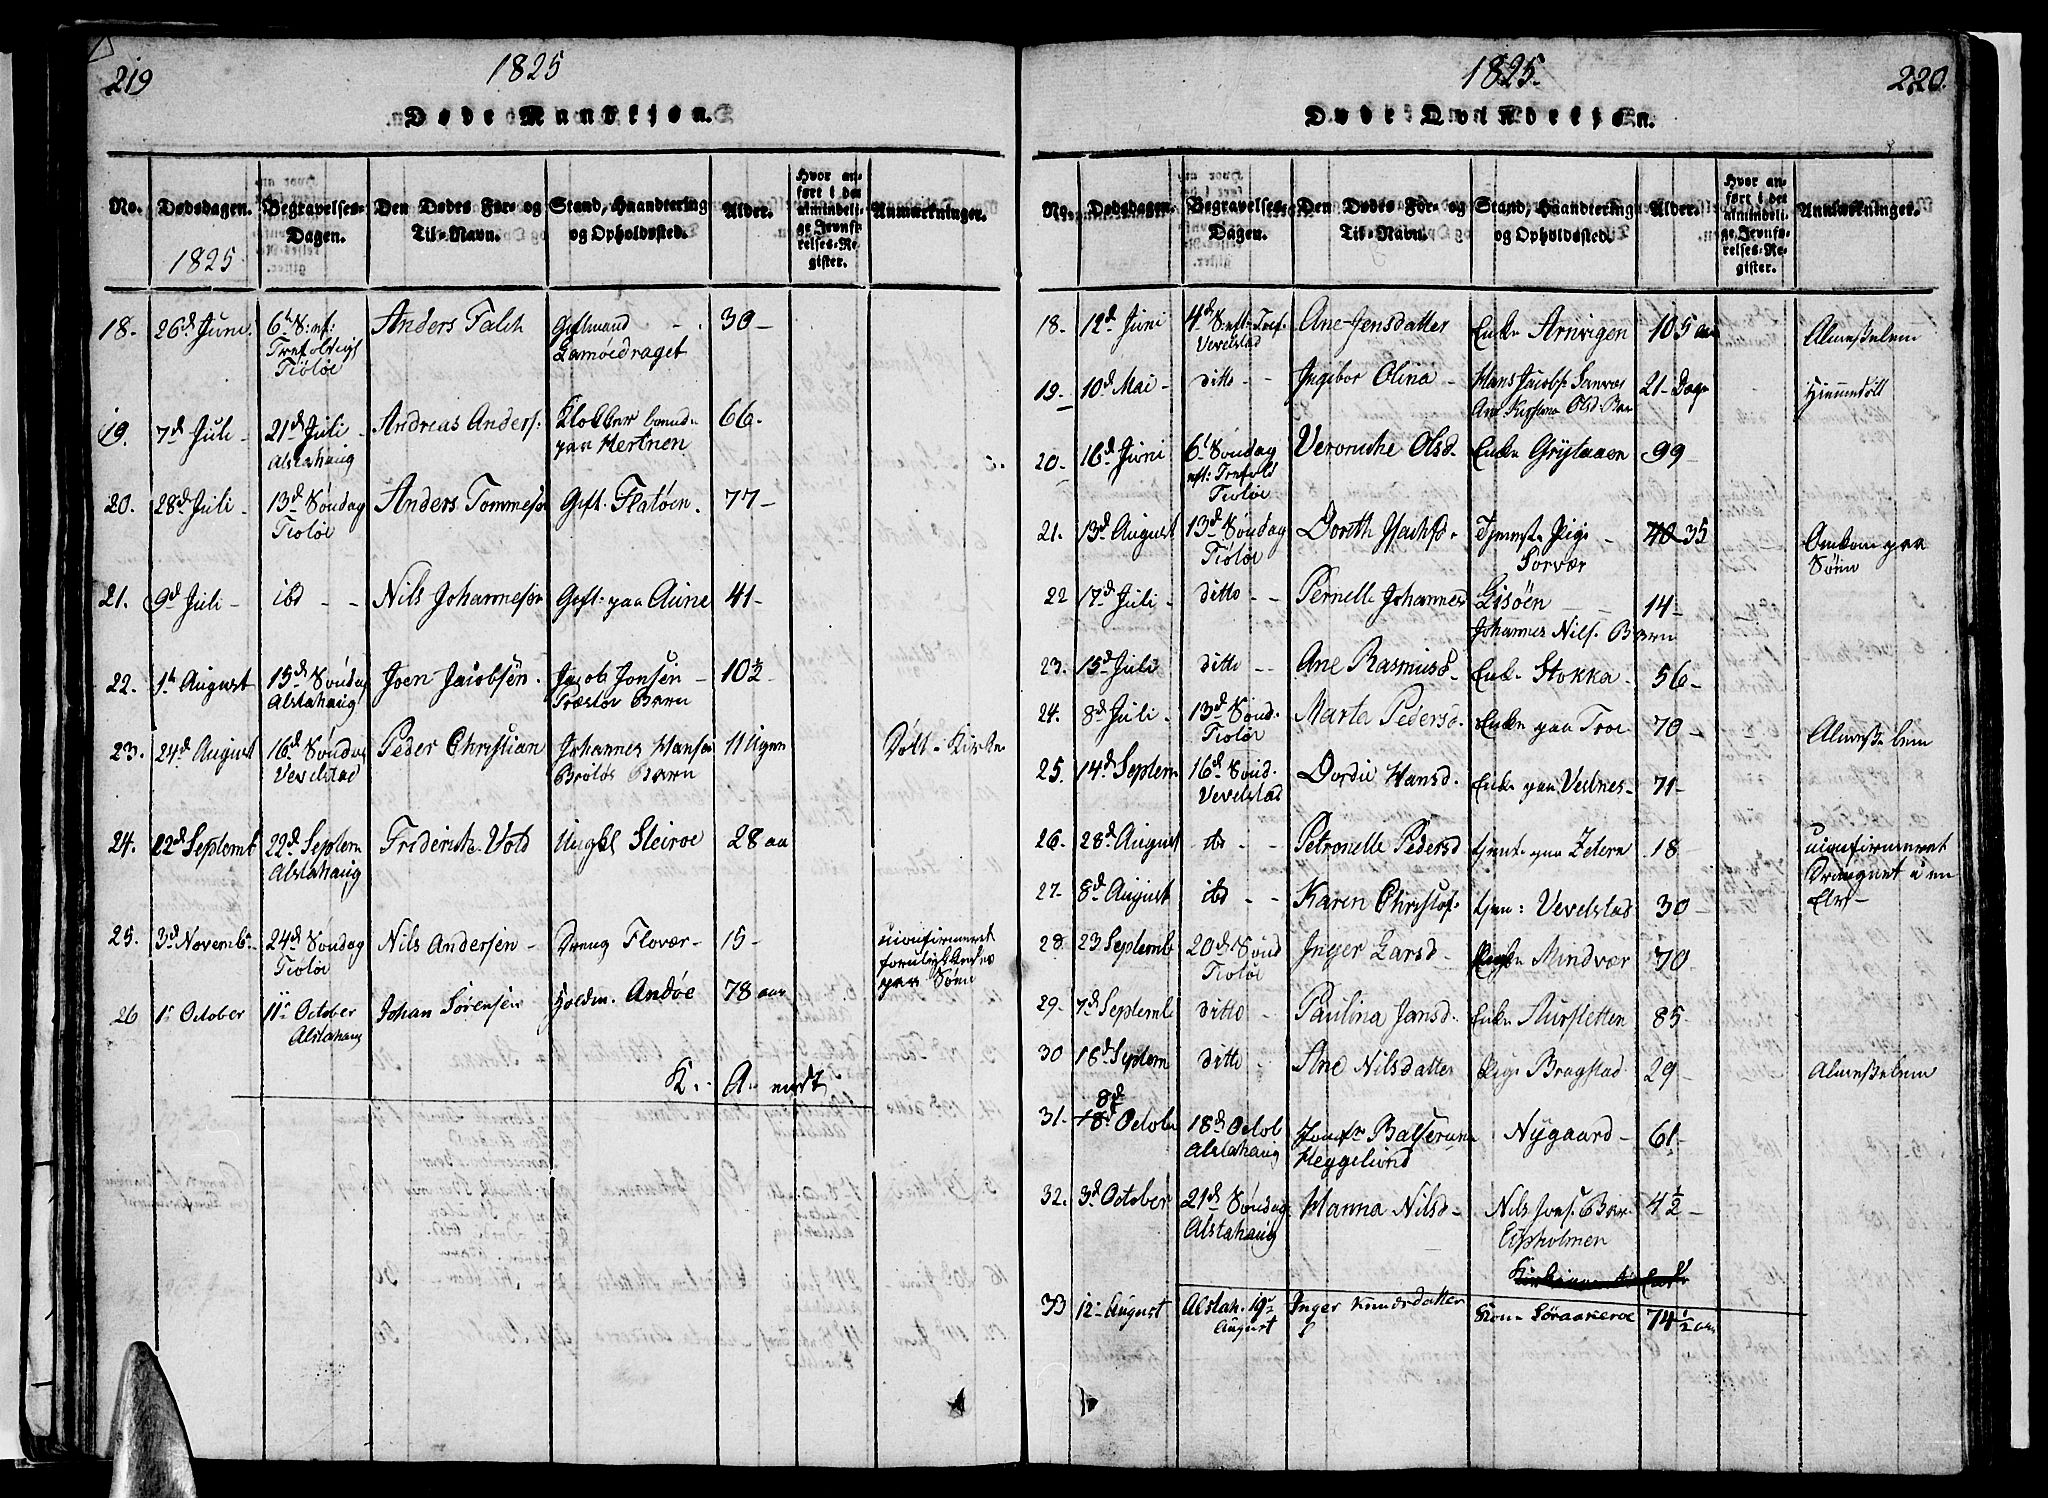 219
1825
Døde Mandkjøn.
No.
Dødsdagen.
1825
Begravelses-Dagen.
Den Dødes For- og Til-Navn.
Stand, Haandtering og Opholdssted.
Alder.
Hvor anført i det almindelige Jevnførelses-Register.
Anmærkninger.
18. 26d Juni 6t S: eft: Trefoldigh Tiötöe Anders Falch Giftmand 30
19. 7d Juli 21d Juli Alstahaug Andreas Anders. Klokker paa Hestnen 66
20. 28d Juli 13d Søndag Tiötöe Anders Tommesøn Gift. Flatöen 77
21. 9d Juli ibd Nils Johannesøn Gift: paa Aune 41
22. 1t August 15d Søndag Alstahaug Joen Jacobsen Jacob Jonsen Præstöe Barn 10½
23. 24d August 16d Søndag Vevelstad Peder Christian Johannes Hansen Barn 11 Ugen Döbt i Kirke
24. 12d Septemb 22d Septem Alstahaug Friderich Vold Ungkl Sleiroe 28 aa
25. 3d Novemb. 24d Søndag Tiötöe Nils Andersen Dreng Flovær 15 uconfirmeret forulykkedes paa Søen
26 1r October 11r October Alstahaug Johan Sørensen Andöe 78 aar
220.
1825.
Døde Qvindekjøn.
No.
Dødsdagen.
Begravelses-Dagen.
Den Dødes For- og Til-Navn.
Stand, Haandtering og Opholdssted.
Alder.
Hvor anført i det almindelige Jevnførelses-Register.
Anmærkninger.
18. 12d Juni 4d S: eft: Tref. Vevelstad Ane Jensdatter Enke Arnvigen 105 aar Almesselem
19. 10d Mai ditto Ingebor Olina Hans Jacobs. Sanvær Ane Kirstina Olsd. Barn 21 Dage Hiemmedöbt
20. 16d Juni 6t Søndag eft: Trefold Tiotöe Veroniche Olsd. Enke 99
21. 13d August 13d Søndag Tiötöe Dorith Tjenest Pige Sorvær 40 35 Omkom paa Søen
22 17d Juli ditto Pernelle Johannes Johannes Nils. Barn 14
23. 15d Juli ditto Ane Rasmusd. Enke Stokka 56
24. 8d Juli 13d Sønd. Tiotöe Marta Pedersd. Enke paa Troe 70 Almesselem
25. 14d Septem 16d Sønd. Vevelstad Dordie Hansd. Enke paa Vesnes 71
26. 28d August ib Petronelle Pedersd tjent paa 18 uconfirmeret Druegnet i en Elv
27. 8d August ibd Karen Christof. tjen: Vevelstad 30
28 23 Septemb 20d Sønd Tiotöe Inger Larsd Enke Mindvær 70
29. 7d Septemb ditto Paulina Jansd. Enke 85
30 16d Septem ditto Ane Nilsdatter Pige Bragstad 29 Almesselem
31. 8d 18d Octob 18d Octob Alstahaug Jomfr Balserina Heggelund Nygaard 61
32. 3d October 21d Søndag Alstahaug Hanna Nilsd Nils Jons. Barn 4½
33 12 August Alstah. 19 August Inger Knudsdatter Kone Søraakeroe 74½ aar